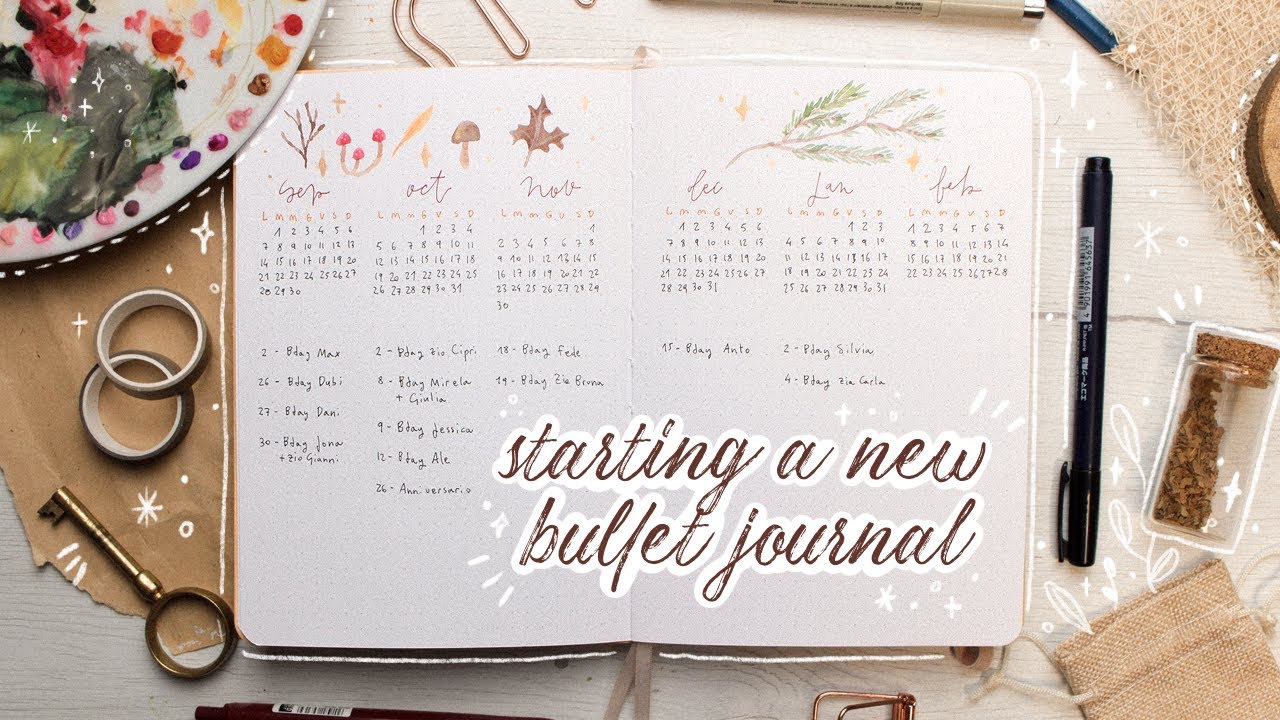 sep oct nov dec Jan feb
L M M G V S D L M M G V S D L M M G V S D L M M G V S D L M M G V S D L M M G V S D
1 2 3 4 5 6 1 2 3 4 1 1 2 3 4 5 6 1 2 3 1 2 3 4 5 6 7
7 8 9 10 11 12 13 5 6 7 8 9 10 11 2 3 4 5 6 7 8 7 8 9 10 11 12 13 4 5 6 7 8 9 10 8 9 10 11 12 13 14
14 15 16 17 18 19 20 12 13 14 15 16 17 18 9 10 11 12 13 14 15 14 15 16 17 18 19 20 11 12 13 14 15 16 17 15 16 17 18 19 20 21
21 22 23 24 25 26 27 19 20 21 22 23 24 25 16 17 18 19 20 21 22 21 22 23 24 25 26 27 18 19 20 21 22 23 24 22 23 24 25 26 27 28
28 29 30 26 27 28 29 30 31 23 24 25 26 27 28 29 28 29 30 31 25 26 27 28 29 30 31
30
Bday
26 - Bday Debi
27 - Bday Dani
30 - Bday Jona
+ zio Gianni
Bday zio
Bday Mirela
+ Giulia
9 - Bday Jessica
12 - Bday Ale
26 - Anniversario
18 - Bday Fede
19 - Bday zia Bruna
15 - Bday
2 - Bday Silvia
4 - Bday zia Carla
starting a new
bullet journal
4 901991 645637
エコマーク商品